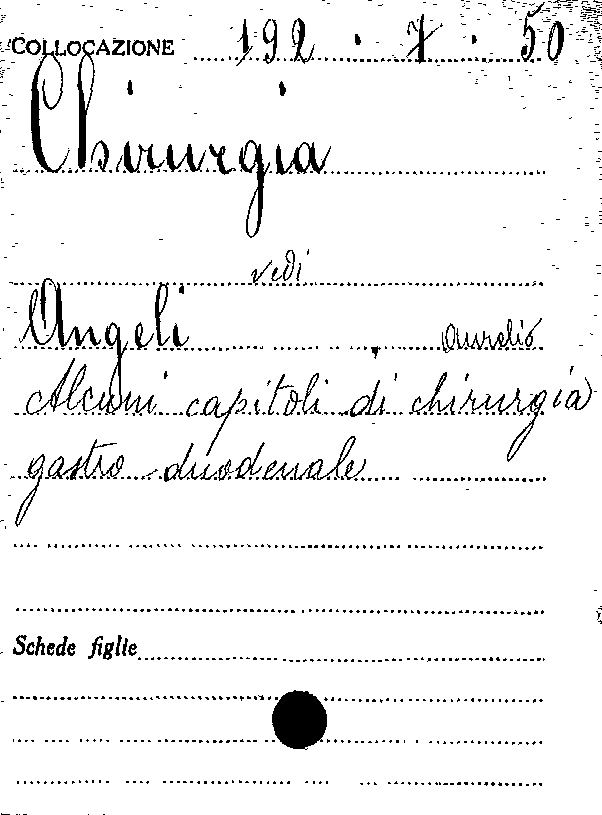 COLLOCAZIONE 192 . 7 . 50
Chirurgia
vedi
Angeli Aurelio
Alcuni capitoli di chirurgia
gastro-duodenale
Schede figlie